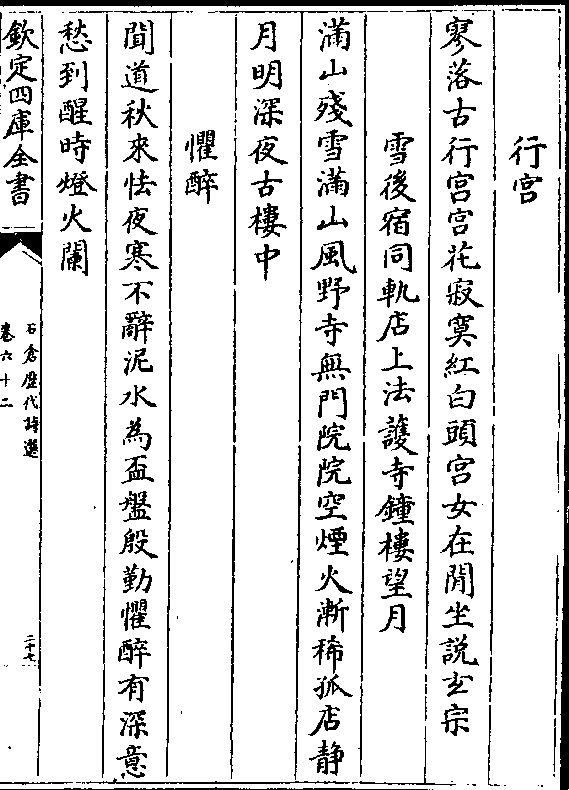 行宫
寥落古行宫宫花寂寞紅白頭宫女在閒坐說玄宗
雪後宿同軌店上法護寺鐘樓望月
滿山殘雪滿山風野寺無門院院空煙火漸稀孤店静
月明深夜古樓中
懼醉
聞道秋來怯夜寒不辭泥水為盃盤殷勤懼醉有深意
愁到醒時燈火闌
欽定四庫全書
石倉歷代詩選
卷六十二
二十七